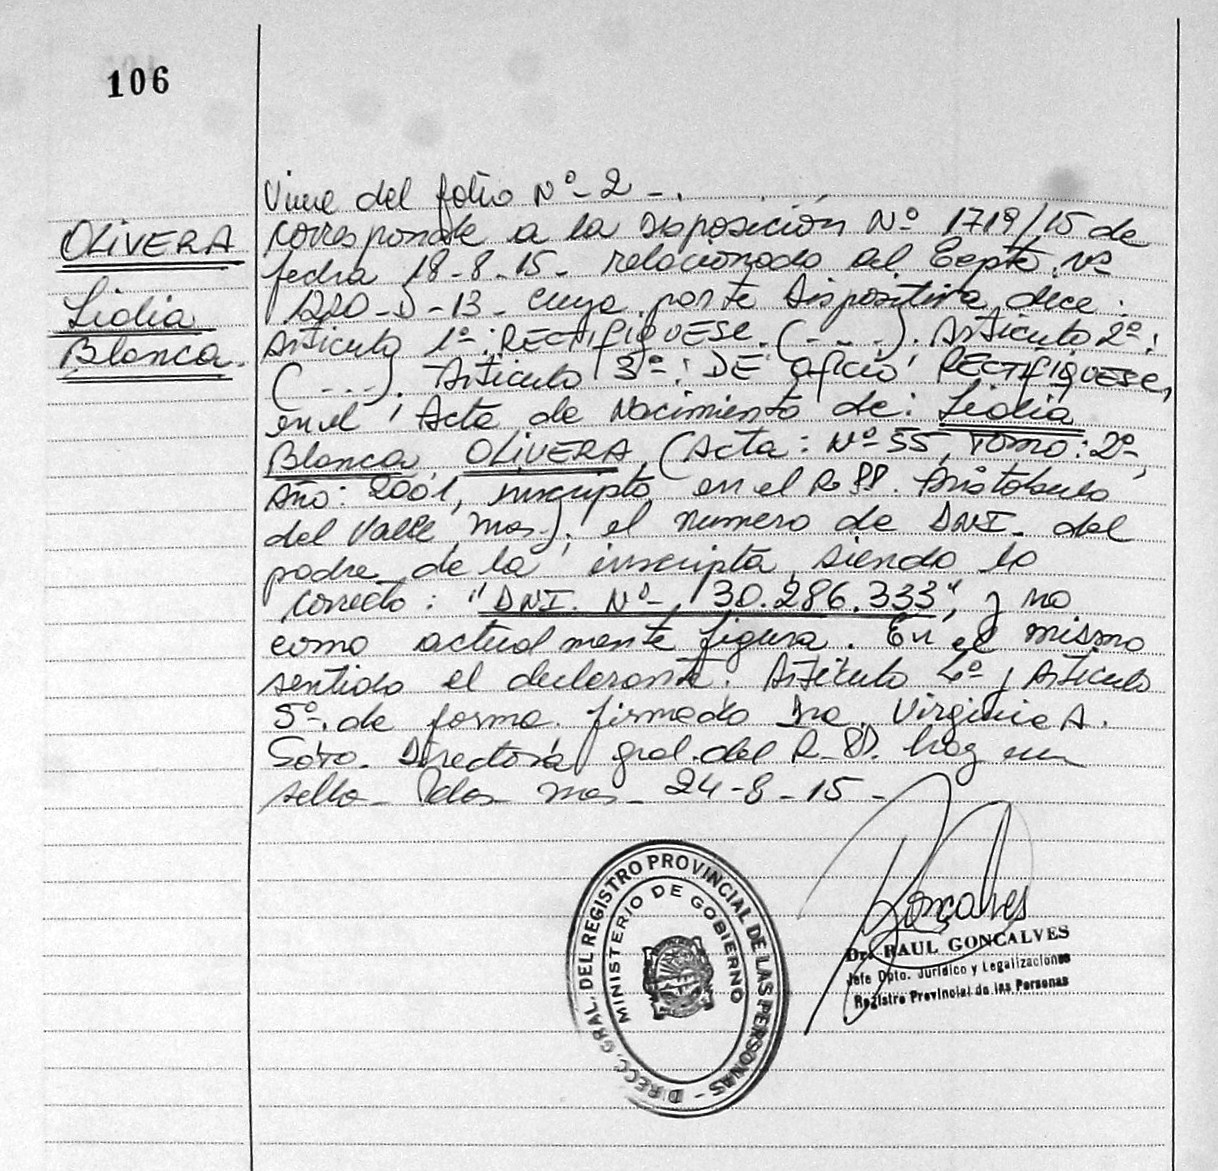 106
OLIVERA
Lidia
Blanca.
Viene del folio Nº-2-.
Corresponde a la Disposición Nº 1719/15 de
fecha 18-8-15- relacionado al Expte. Nº
1220-D-13- cuya parte dispositiva dice:
Articulo 1º: RECTIFIQUESE. (- - -). Articulo 2º:
(- - -). Articulo 3º: DE oficio RECTIFIQUESE,
en el Acta de Nacimiento de: Lidia
Blanca OLIVERA (Acta: Nº 55, Tomo: 2º,
Año: 2001, inscripta en el R.PP. Aristobulo
del Valle, Mnes); el numero de DNI. del
padre de la inscripta, siendo lo
correcto: "DNI. Nº- 30.286.333", y no
como actualmente figura. En el mismo
sentido el declarante. Articulo 4º y Articulo
5º. de forma. firmado Dra. Virginia A.
Soto. Directora gral. del R.PP. hay un
sello- Pdas Mnes- 24-8-15-
DIRECC. GRAL. DEL REGISTRO PROVINCIAL DE LAS PERSONAS -
MINISTERIO DE GOBIERNO
Gonçalves
Dr. RAUL GONCALVES
Jefe Dpto. Jurídico y Legalizaciones
Registro Provincial de las Personas